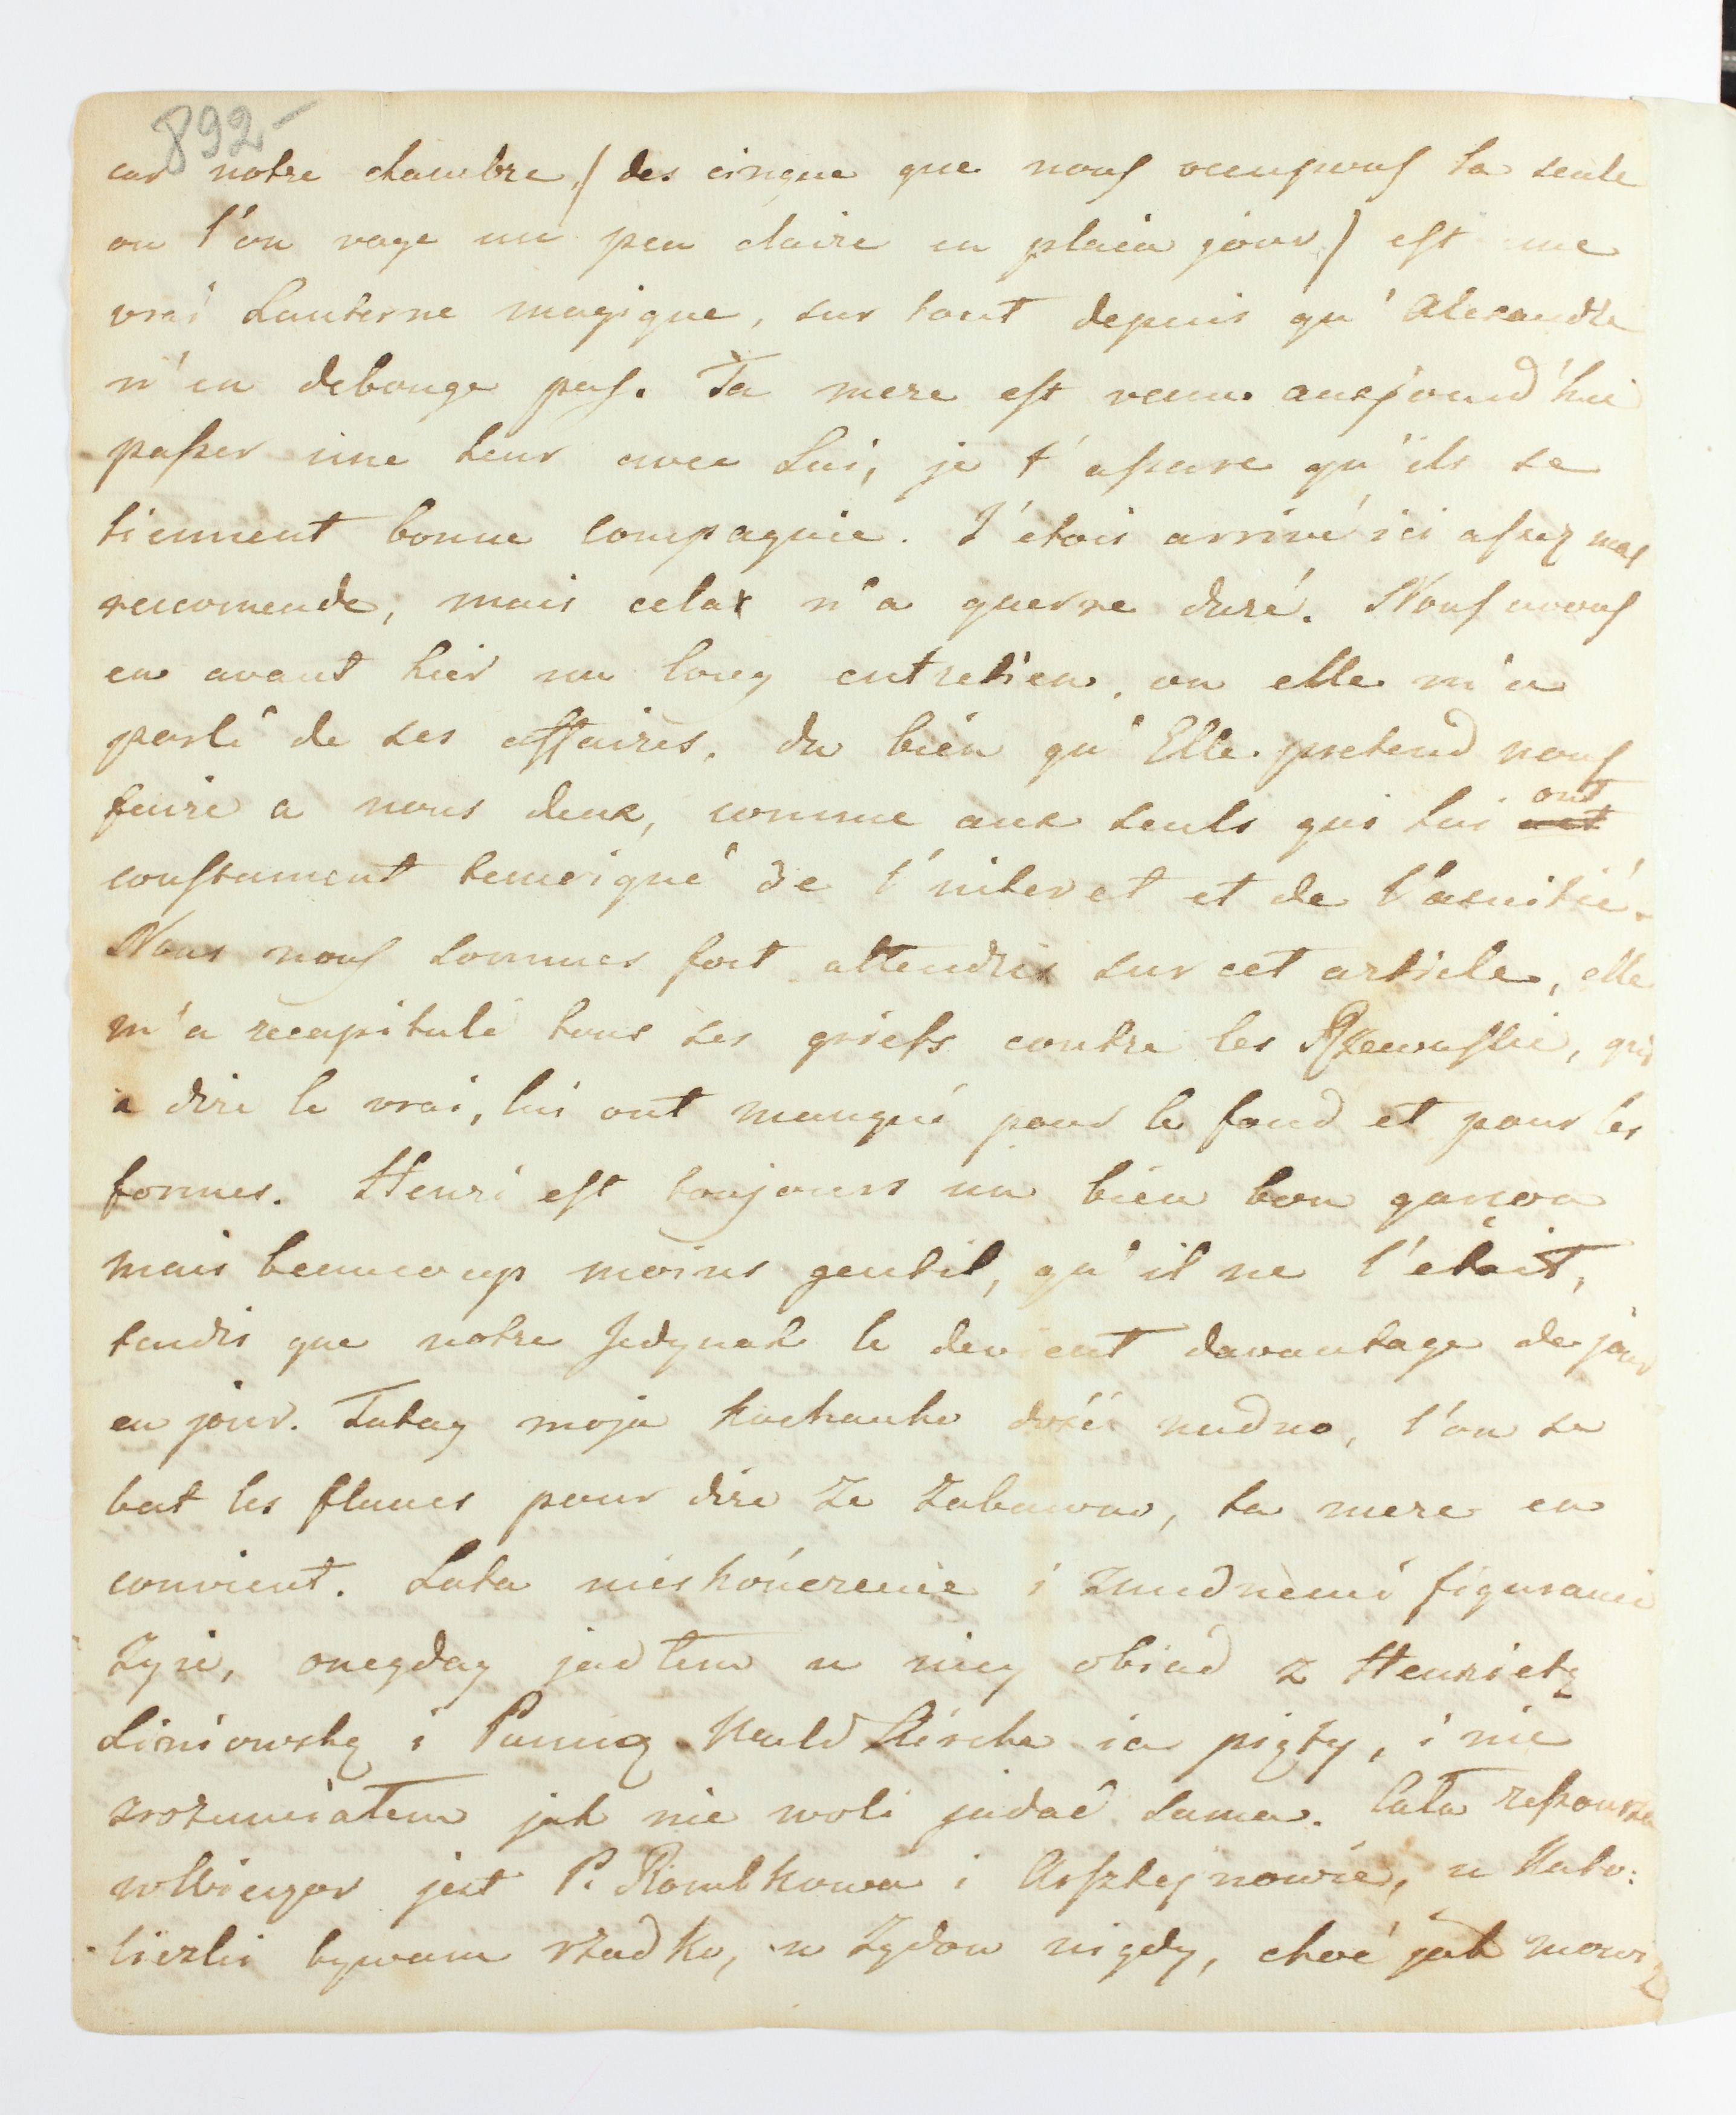 892
car notre chambre, (des cinque que nous occupons la seule
ou l'on voye un peu claire en plein jour) est une
vrai Lanterne magique, sur tout depuis qu'Alexandre
n'en debouge pas. Ta mere est venu aujourd'hui
passer une heur avec Lui, je t'assure qu'ils se
tiennent bonne compagnie. J'etois arrivé ici assez mal
reccomende, mais cela n'a guerre duré. Nous avons
eu avant hier un long entretien, ou elle m'a
parlé de ses affaires, du bien qu'Elle pretend nous
faire a nous deux, comme aux seuls qui lui ont
constament temoigné de l'interet et de l'amitié.
Nous nous sommes fort attendris sur cet article, elle
m'a recapitulé tous ses griefs contre les Rzewuskie, qui
à dire le vrai, lui ont manqué pour le fond et pour les
formes. Henri est toujours un bien bon garcon
mais beaucoup moins gentil, qu'il ne l'était,
tandis que notre Jedynak le devient davantage de jour
en jour. Tutay moja kochanko dość nudno, l'on se
bat les flancs pour dire ze zabawno, ta mere en
convient. Lata nieskończenie i z nudnemi figurami
zyie, onegday jadłem u niey obiad z Henrietą
Liniowską i Panną piąty, i nie
zrozumiałem jak nie woli jadać sama. Cała
w Wieczor jest P. i u
bywam rzadko, u Zydow nigdy, choć jak mowią